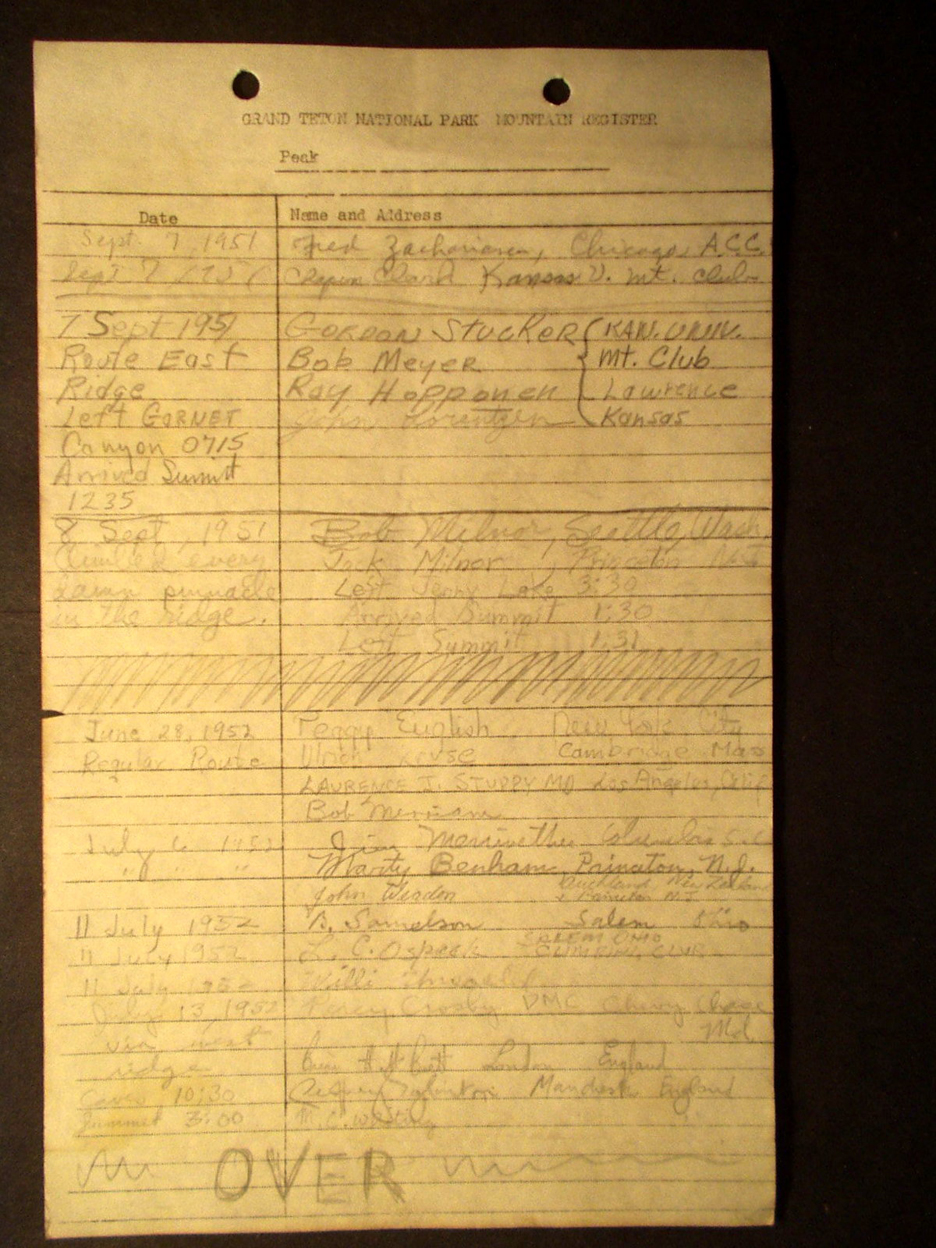 GRAND TETON NATIONAL PARK MOUNTAIN REGISTER
Peak
Date Name and Address
Sept. 7, 1951 Fred Zachariasen, Chicago, A.C.C.
Sept 7 1951 Clark Kansas U. Mt. Club
7 Sept 1951 GORDON STUCKER { KAN. UNIV.
Route East Bob Meyer Mt. Club
Ridge Ray Hopponen Lawrence
Left GARNET John Lorentzen Kansas
Canyon 0715
Arrived Summit
1235
8 Sept, 1951 Bob Milnor, Seattle, Wash.
Climbed every Jack Milnor, Princeton
damn pinnacle Left Jenny Lake 3:30
in the ridge. Arrived Summit 1:30
Left Summit 1:31
June 28, 1952 Peggy English, New York City
Regular Route Ulrich Kruse Cambridge Mass
LAURENCE J. STUPPY MD Los Angeles, Calif
Bob Merriam
July 6 1952 Jim Meriwether Columbia S.C.
" " " Marty Benham Princeton, N.J.
John Auckland New Zealand
+ Princeton N.J.
11 July 1952 B. Samelson Salem Ohio
11 July 1952 L. C. Ospeck SALEM OHIO
CLIMBING CLUB
11 July 1952 Willi Unsoeld
July 13, 1952 Percy Crosby DMC Chevy Chase
via west Md.
ridge London England
10:30 England
Summit 3:00 M.C.
OVER